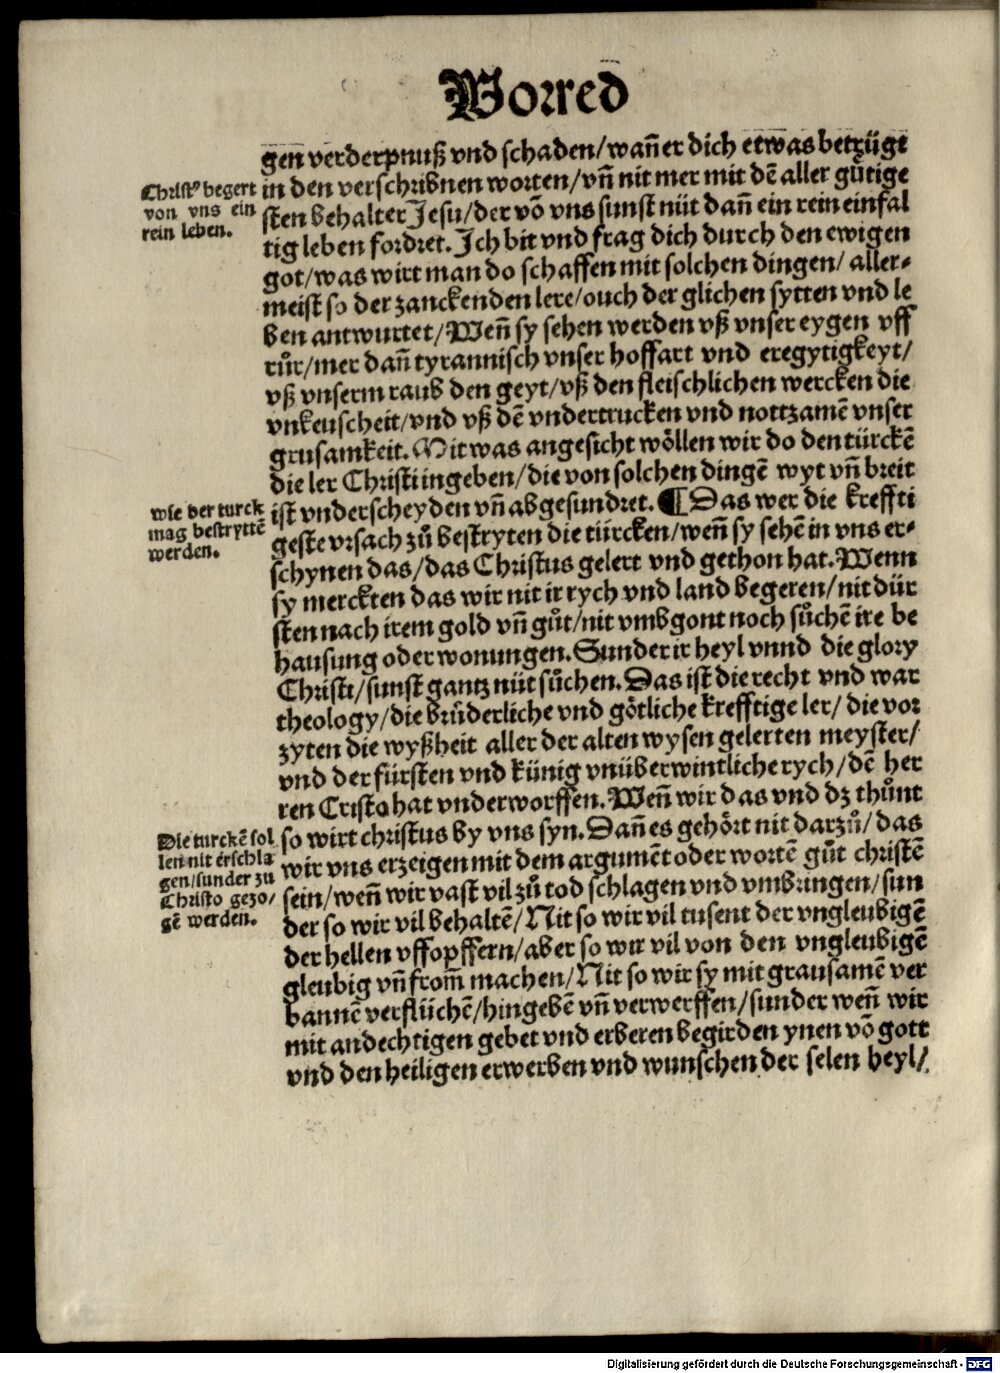 Vorred
gen verderpnuß vnd schaden/wan̄ er dich etwas betzüge
in den verschribnen worten/vn̄ nit mer mit dē aller gůtige
sten behalter Jesu/der vō vns sunst nüt dan̄ ein rein einfal
tig leben fordret. Ich bit vnd frag dich durch den ewigen
got/was wirt man do schaffen mit solchen dingen/ aller⸗
meist so der zanckenden lere/ouch der glichen sytten vnd le
ben antwurtet/Wen̄ sy sehen werden vß vnser eygen vff
růr/mer dan̄ tyrannisch vnser hoffart vnd eregytigkeyt/
vß vnserm raub den geyt/vß den fleischlichen wercken die
vnkeuscheit/vnd vß dē vndertrucken vnd nottzamē vnser
grusamkeit. Mit was angesicht wöllen wir do den türckē
die ler Christi ingeben/die von solchen dingē wyt vn̄ breit
ist vnderscheyden vn̄ abgesundret. ¶ Das wer die kreffti
geste vrsach zů bestryten die türcken/wen̄ sy sehē in vns er⸗
schynen das/das Christus gelert vnd gethon hat. Wenn
sy merckten das wir nit ir rych vnd land begeren/nit dür
sten nach irem gold vn̄ gůt/nit vmbgont noch sůchē ire be
hausung oder wonungen. Sunder ir heyl vnnd die glory
Christi/sunst gantz nüt sůchen. Das ist die recht vnd war
theology/die brůderliche vnd götliche krefftige ler/ die vor
zyten die wyßheit aller der alten wysen gelerten meyster/
vnd der fürsten vnd künig vnüberwintliche rych/dē her
ren Cristo hat vnderworffen. Wen̄ wir das vnd dz thůnt
so wirt christus by vns syn. Dan̄ es gehört nit darzů/ das
wir vns erzeigen mit dem argumēt oder wortē gůt christē
sein/wen̄ wir vast vil zů tod schlagen vnd vmbringen/sun
der so wir vil behaltē/Nit so wir vil tusent der vngleubigē
der hellen vffopffern/aber so wir vil von den vngleubigē
gleubig vn̄ from̄ machen/Nit so wir sy mit grausamē ver
bannē verflüchē/hingebē vn̄ verwerffen/sunder wen̄ wir
mit andechtigen gebet vnd erberen begirden ynen vō gott
vnd den heiligen erwerben vnd wunschen der selen heyl/
Christꝰ begert
von vns ein
rein leben.
wie der turck
mag bestryttē
werden.
Die turckē sol
len nit erschla
gen/sunder zu
Christo gezo/
gē werden.
Digitalisierung gefördert durch die Deutsche Forschungsgemeinschaft - DFG